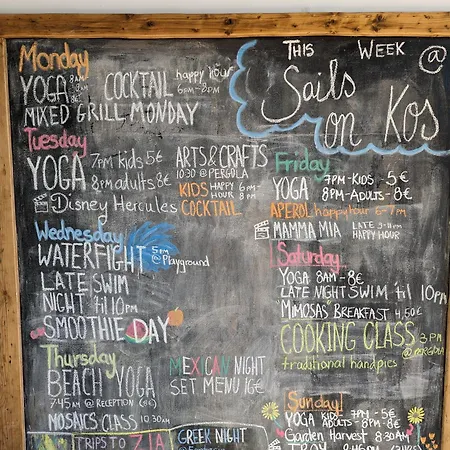 Monday
YOGA 8AM
8€
COCKTAIL happy hour
6PM-8PM
MIXED GRILL MONDAY
Tuesday
YOGA 7PM kids 5€
8PM adults 8€
Disney Hercules
ARTS & CRAFTS
10:30 @ PERGOLA
KIDS HAPPY HOUR 6PM-8PM
COCKTAIL
Wednesday
WATERFIGHT 5PM
@Playground
LATE SWIM
NIGHT 'til 10PM
SMOOTHIE DAY
Thursday
BEACH YOGA
7:45AM @ RECEPTION
MOSAICS CLASS 10:30AM
MEXICAN NIGHT
SET MENU 16€
TRIPS TO ZIA
GREEK NIGHT
THIS WEEK @
Sails
on Kos
Friday
YOGA 7PM-KIDS-5€
8PM-ADULTS-8€
APEROL happy hour 6-7PM
MAMMA MIA LATE
HAPPY HOUR
Saturday
YOGA 8AM-8€
LATE NIGHT SWIM 'til 10PM
"MIMOSAS" BREAKFAST 4,50€
COOKING CLASS 3PM
@PERGOLA
traditional handpies
Sunday!
YOGA KIDS 7PM-5€
ADULTS 8PM-8€
Garden Harvest 8:30AM
TROY